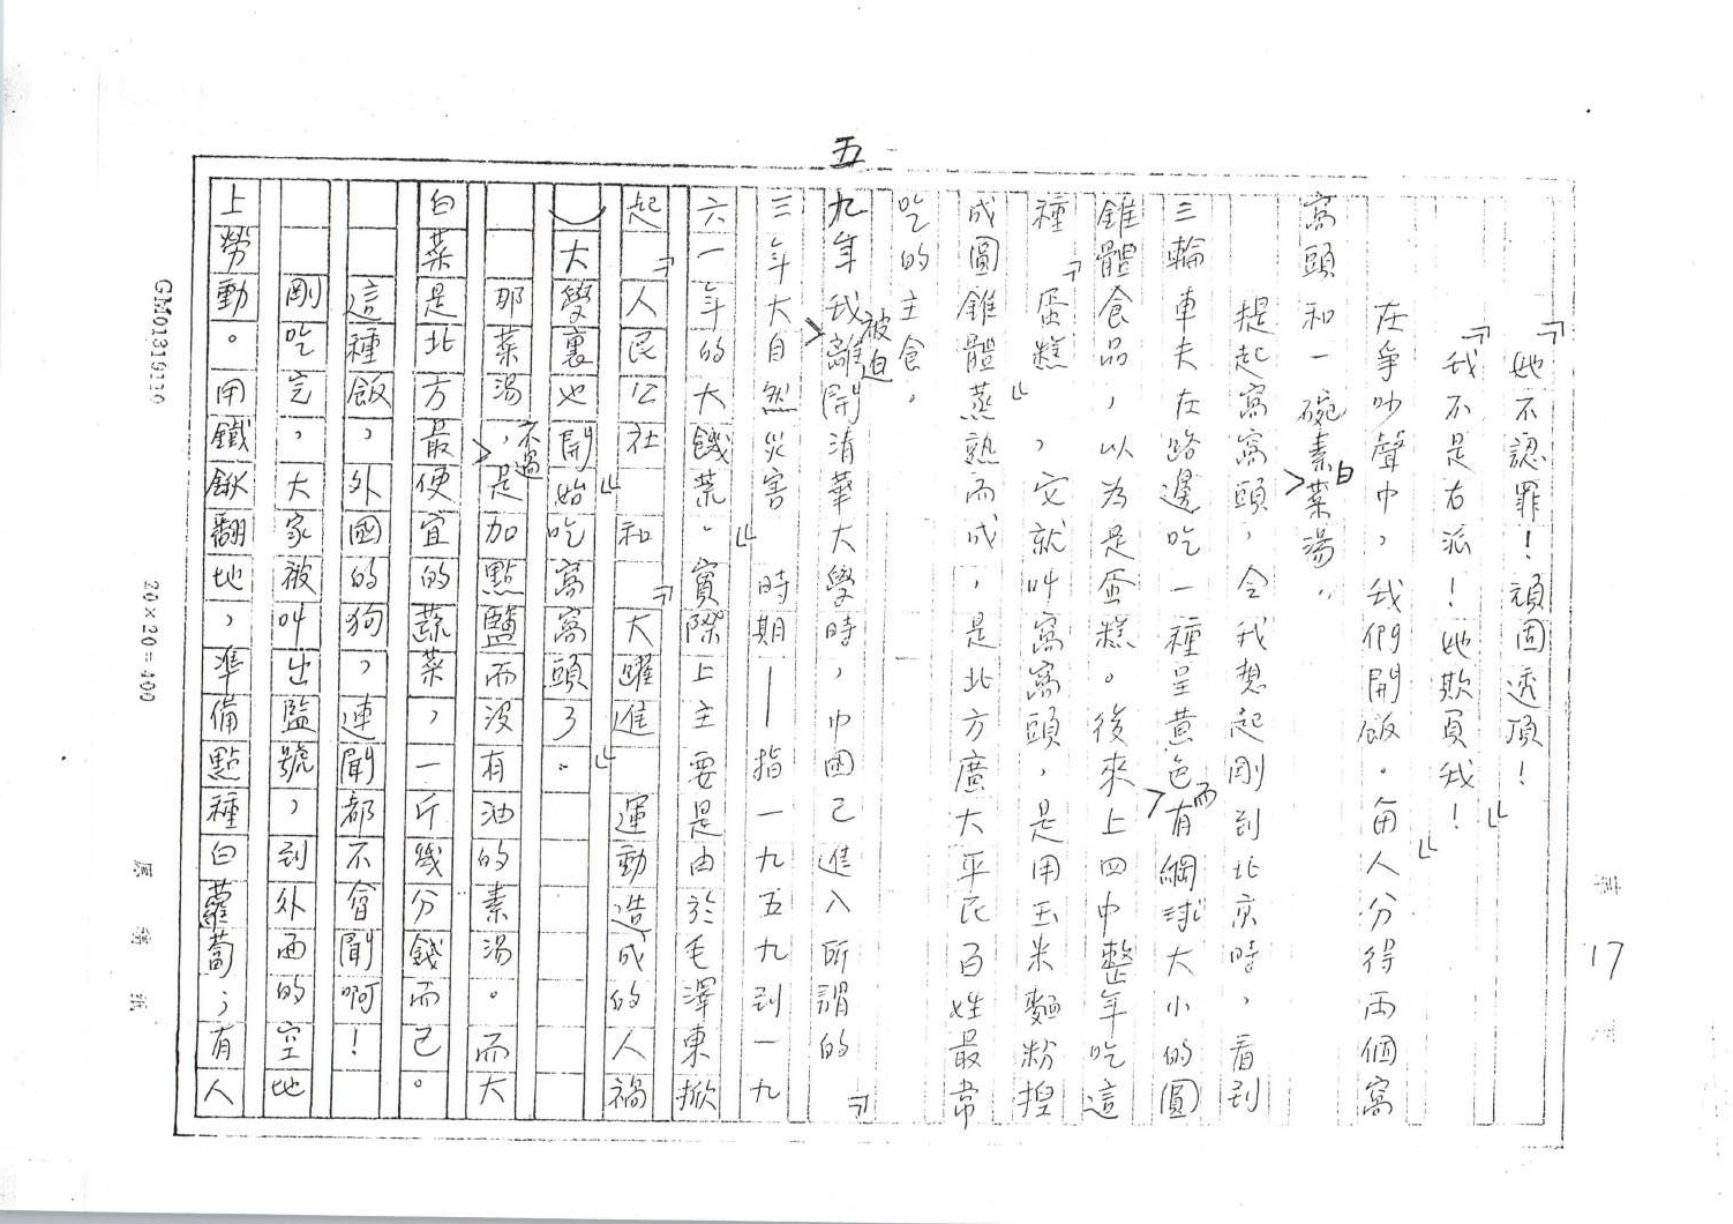 第 17 頁
『她不認罪！頑固透頂！』
『我不是右派！她欺負我！』
在爭吵聲中，我們開飯。每人分得兩個窩
窩頭和一碗素白菜湯。
提起窩窩頭，令我想起剛到北京時，看到
三輪車夫在路邊吃一種呈黄色而有網球大小的圓
錐體食品，以為是蛋糕。後來上四中整年吃這
種『蛋糕』，它就叫窩窩頭，是用玉米麵粉揑
成圓錐體蒸熟而成，是北方廣大平民百姓最常
吃的主食。
五九年我被迫離開清華大學時，中国已進入所謂的『
三年大自然災害』時期——指一九五九到一九
六一年的大饑荒。實際上主要是由於毛澤東掀
起『人民公社』和『大躍進』運動造成的人禍
）大學裏也開始吃窩窩頭了。
那菜湯，不過是加點鹽而没有油的素湯。而大
白菜是北方最便宜的蔬菜，一斤幾分錢而已。
這種飯，外國的狗，連聞都不會聞啊！
剛吃完，大家被叫出監號，到外面的空地
上勞動。用鐵鍬翻地，準備點種白蘿蔔；有人
GM01319220
20×20=400
原稿紙